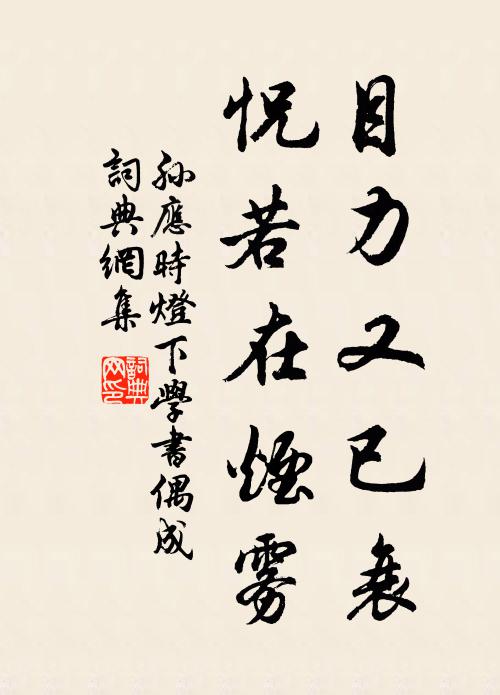 目力又已衰
怳若在煙雾
孫應時燈下學書偶成
詞典網集
詞典网印